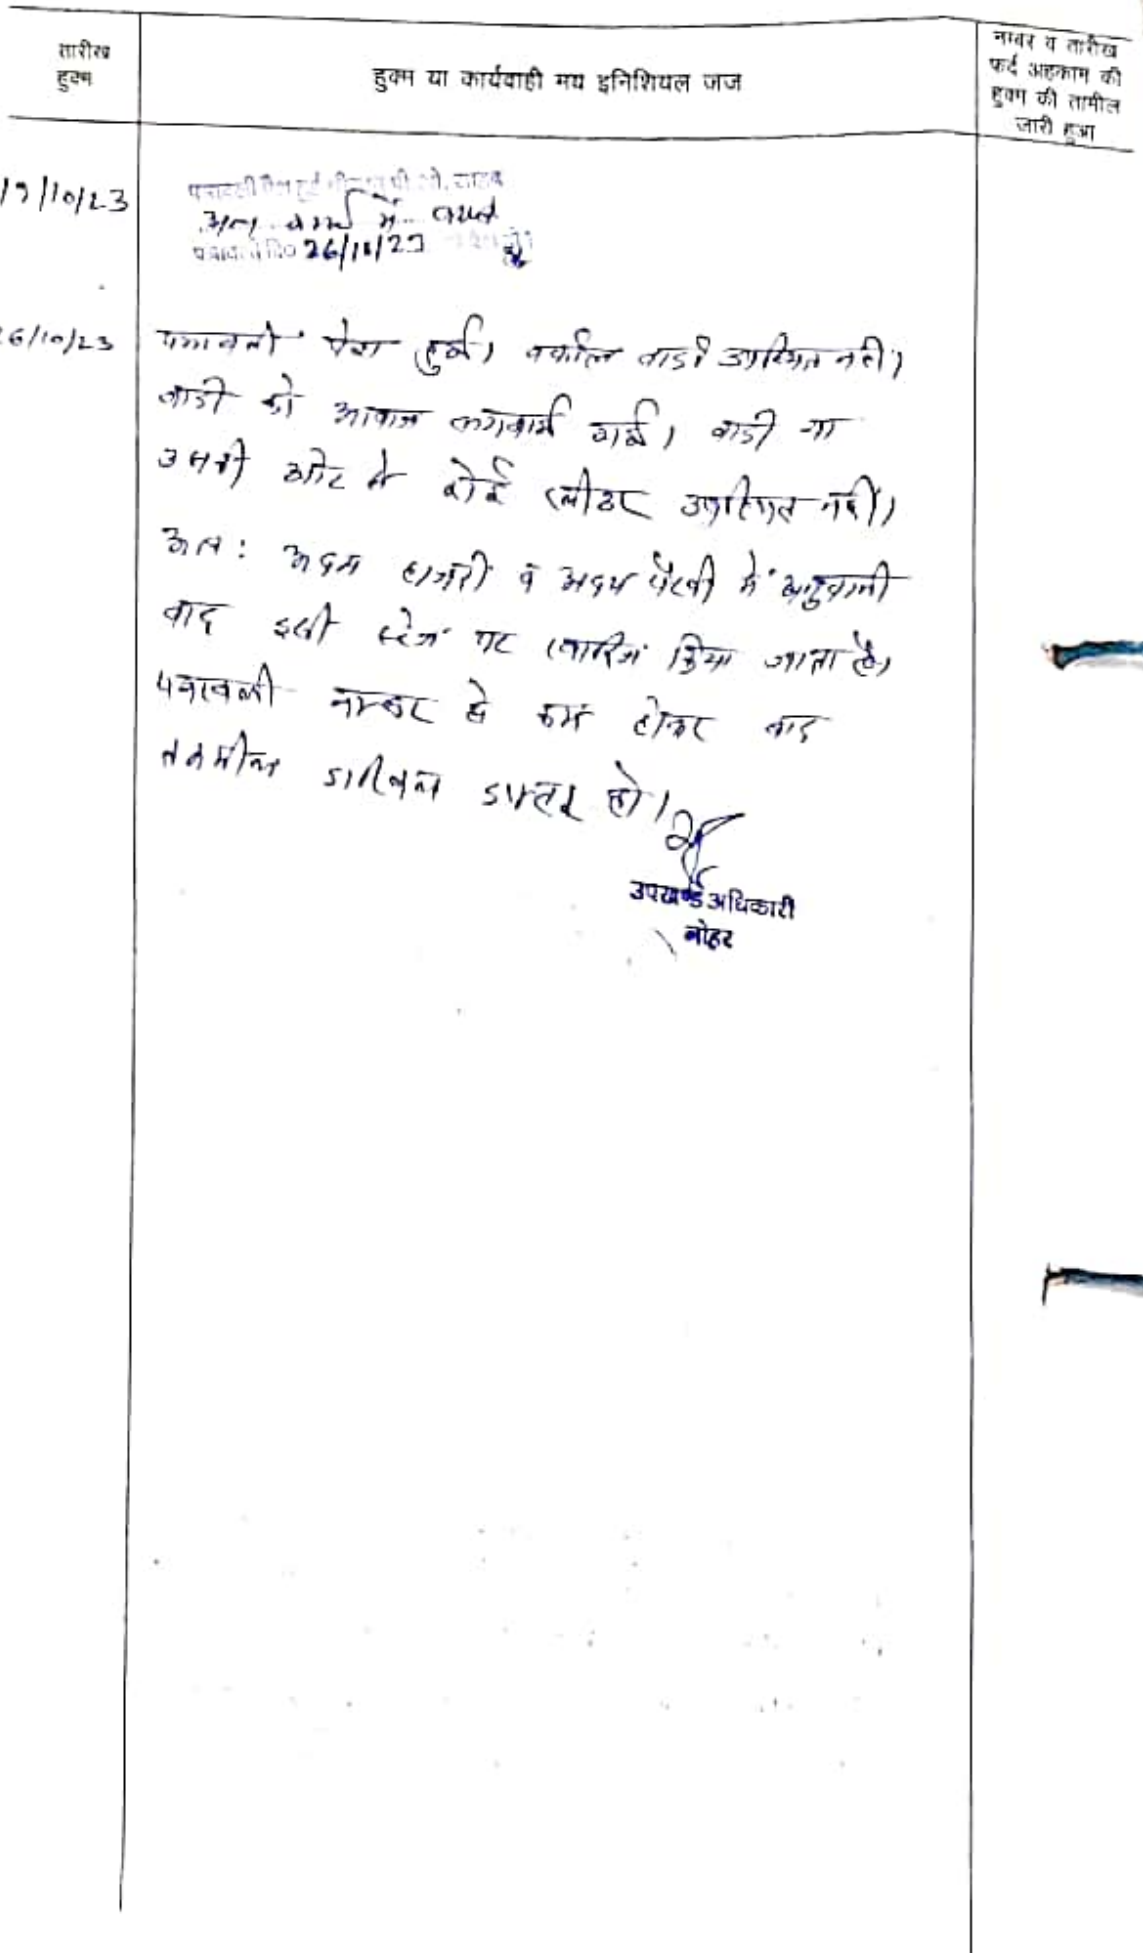 तारीख
हुक्म
हुक्म या कार्यवाही मय इनिशियल जज
नम्बर व तारीख
फर्द अहकाम की
हुक्म की तामील
जारी हुआ
19/10/23
पत्रावली पेश हुई पी.ओ. साहब
अन्य कार्य में व्यस्त
पत्रावली दि० 26/10/23
26/10/23
पत्रावली पेश हुई। वकील वादी उपस्थित नही।
वादी को आवाज लगवाई गई। वादी या
उसकी ओर से कोई प्लीडर उपस्थित नहीं।
अतः अदम हाजरी व अदम पैरवी में
वाद इसी स्टेज पर खारिज किया जाता है।
पत्रावली नम्बर से कम होकर बाद
तकमील दाखिल दफ्तर हो।
उपखण्ड अधिकारी
नोहर